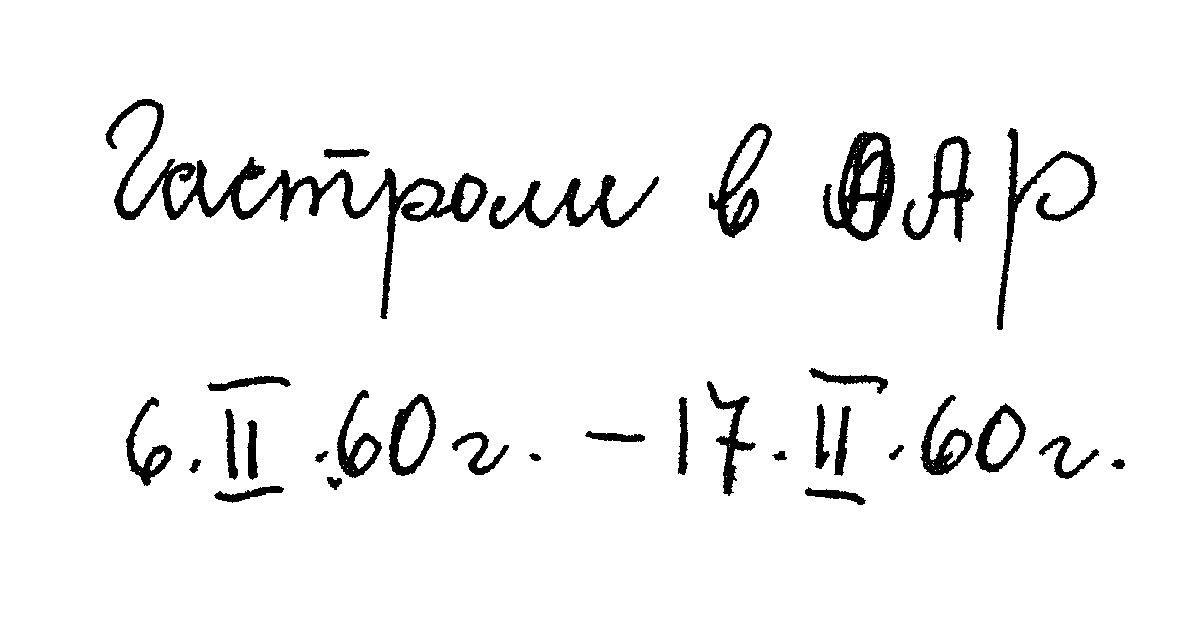 Гастроли в ОАР
6.II.60г. – 17.II.60г.